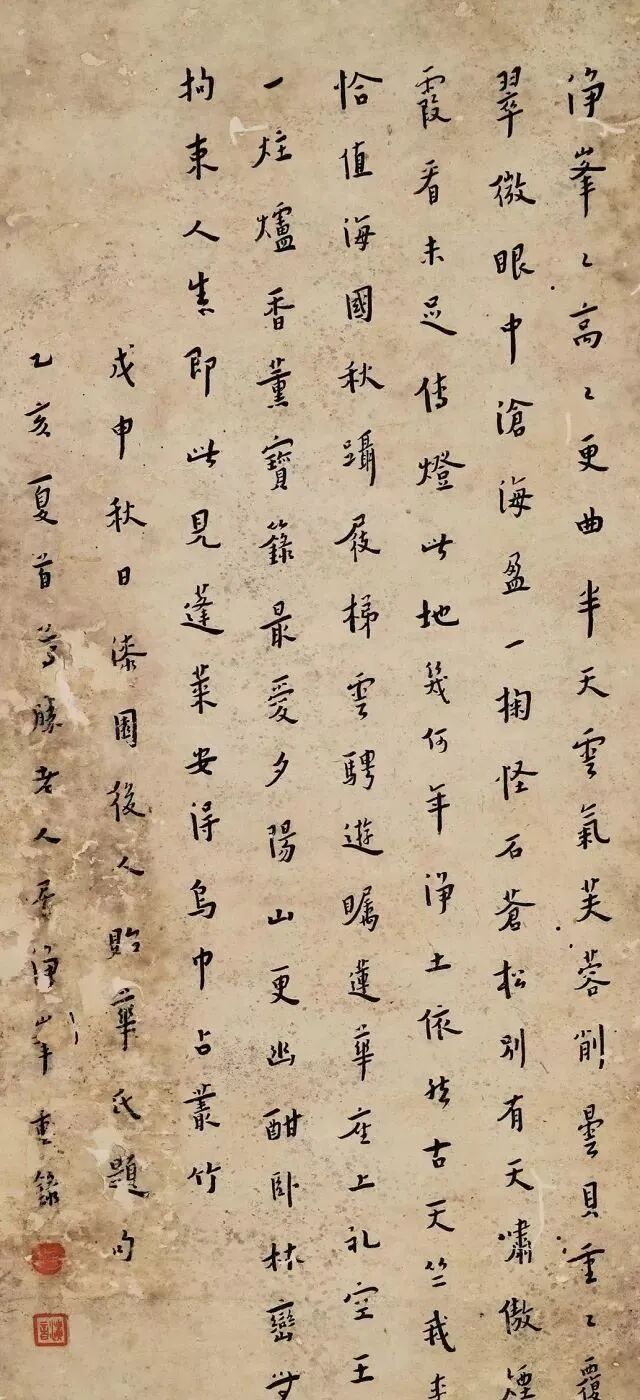 净峯〻高〻更曲半天雲氣芙蓉削曇貝重〻覆
翠微眼中滄海盈一掬怪石蒼松別有天嘯傲煙
霞看未足傳燈此地幾何年净土依然古天竺我来
恰值海國秋躡屐梯雲騁遊矚蓮華座上礼空王
一炷爐香薰寶籙最愛夕陽山更幽酣卧林巒
拘束人生即此見蓬萊安得烏巾占叢竹
戊申秋日漆園後人貽華氏題句
乙亥夏首尊勝老人居净峯重錄